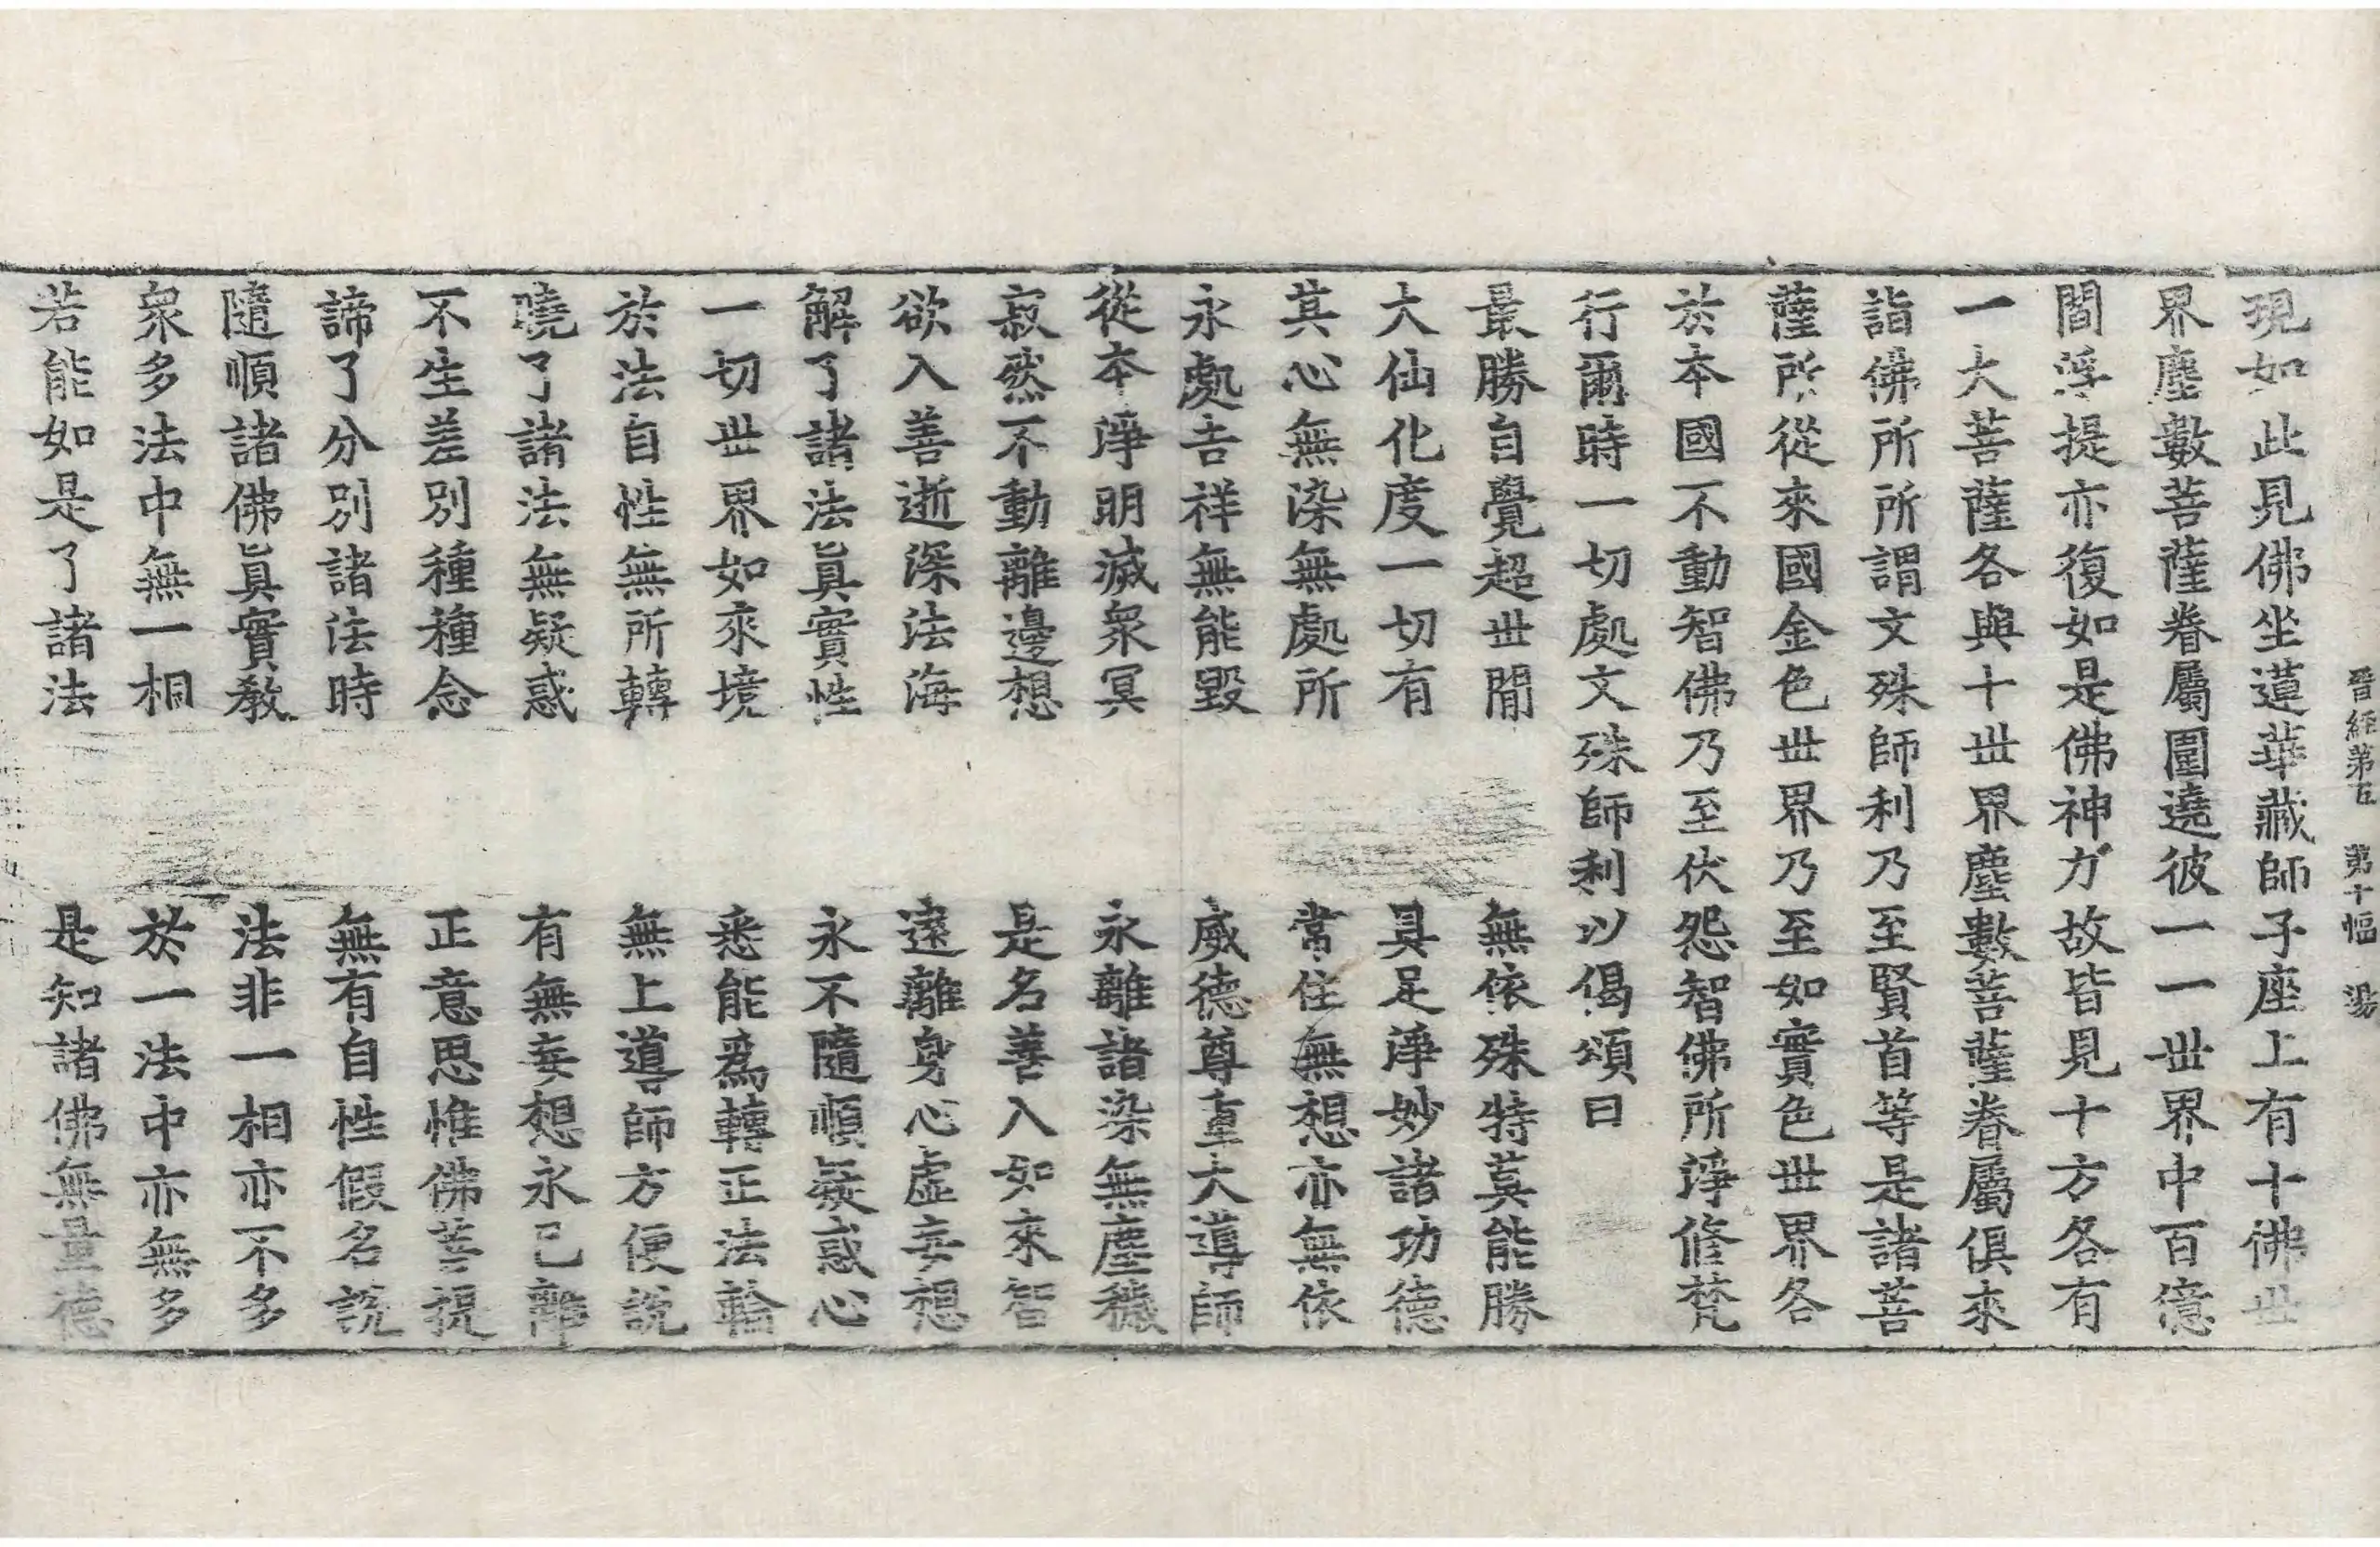 晉經第五　第十幅　湯
現如此見佛坐蓮華藏師子座上有十佛世
界塵數菩薩眷屬圍遶彼一一世界中百億
閻浮提亦復如是佛神力故皆見十方各有
一大菩薩各與十世界塵數菩薩眷屬俱來
詣佛所所謂文殊師利乃至賢首等是諸菩
薩所從來國金色世界乃至如實色世界各
於本國不動智佛乃至伏怨智佛所淨修梵
行爾時一切處文殊師利以偈頌曰
最勝自覺超世間　無依殊特莫能勝
大仙化度一切有　具足淨妙諸功德
其心無染無處所　常住無想亦無依
永處吉祥無能毀　威德尊重大導師
從本淨明滅衆冥　永離諸染無塵穢
寂然不動離邊想　是名善入如來智
欲入善逝深法海　遠離身心虛妄想
解了諸法眞實性　永不隨順疑惑心
一切世界如來境　悉能爲轉正法輪
於法自性無所轉　無上導師方便說
曉了諸法無疑惑　有無妄想永已離
不生差別種種念　正意思惟佛菩提
諦了分別諸法時　無有自性假名說
隨順諸佛眞實教　法非一相亦不多
衆多法中無一相　於一法中亦無多
若能如是了諸法　是知諸佛無量德